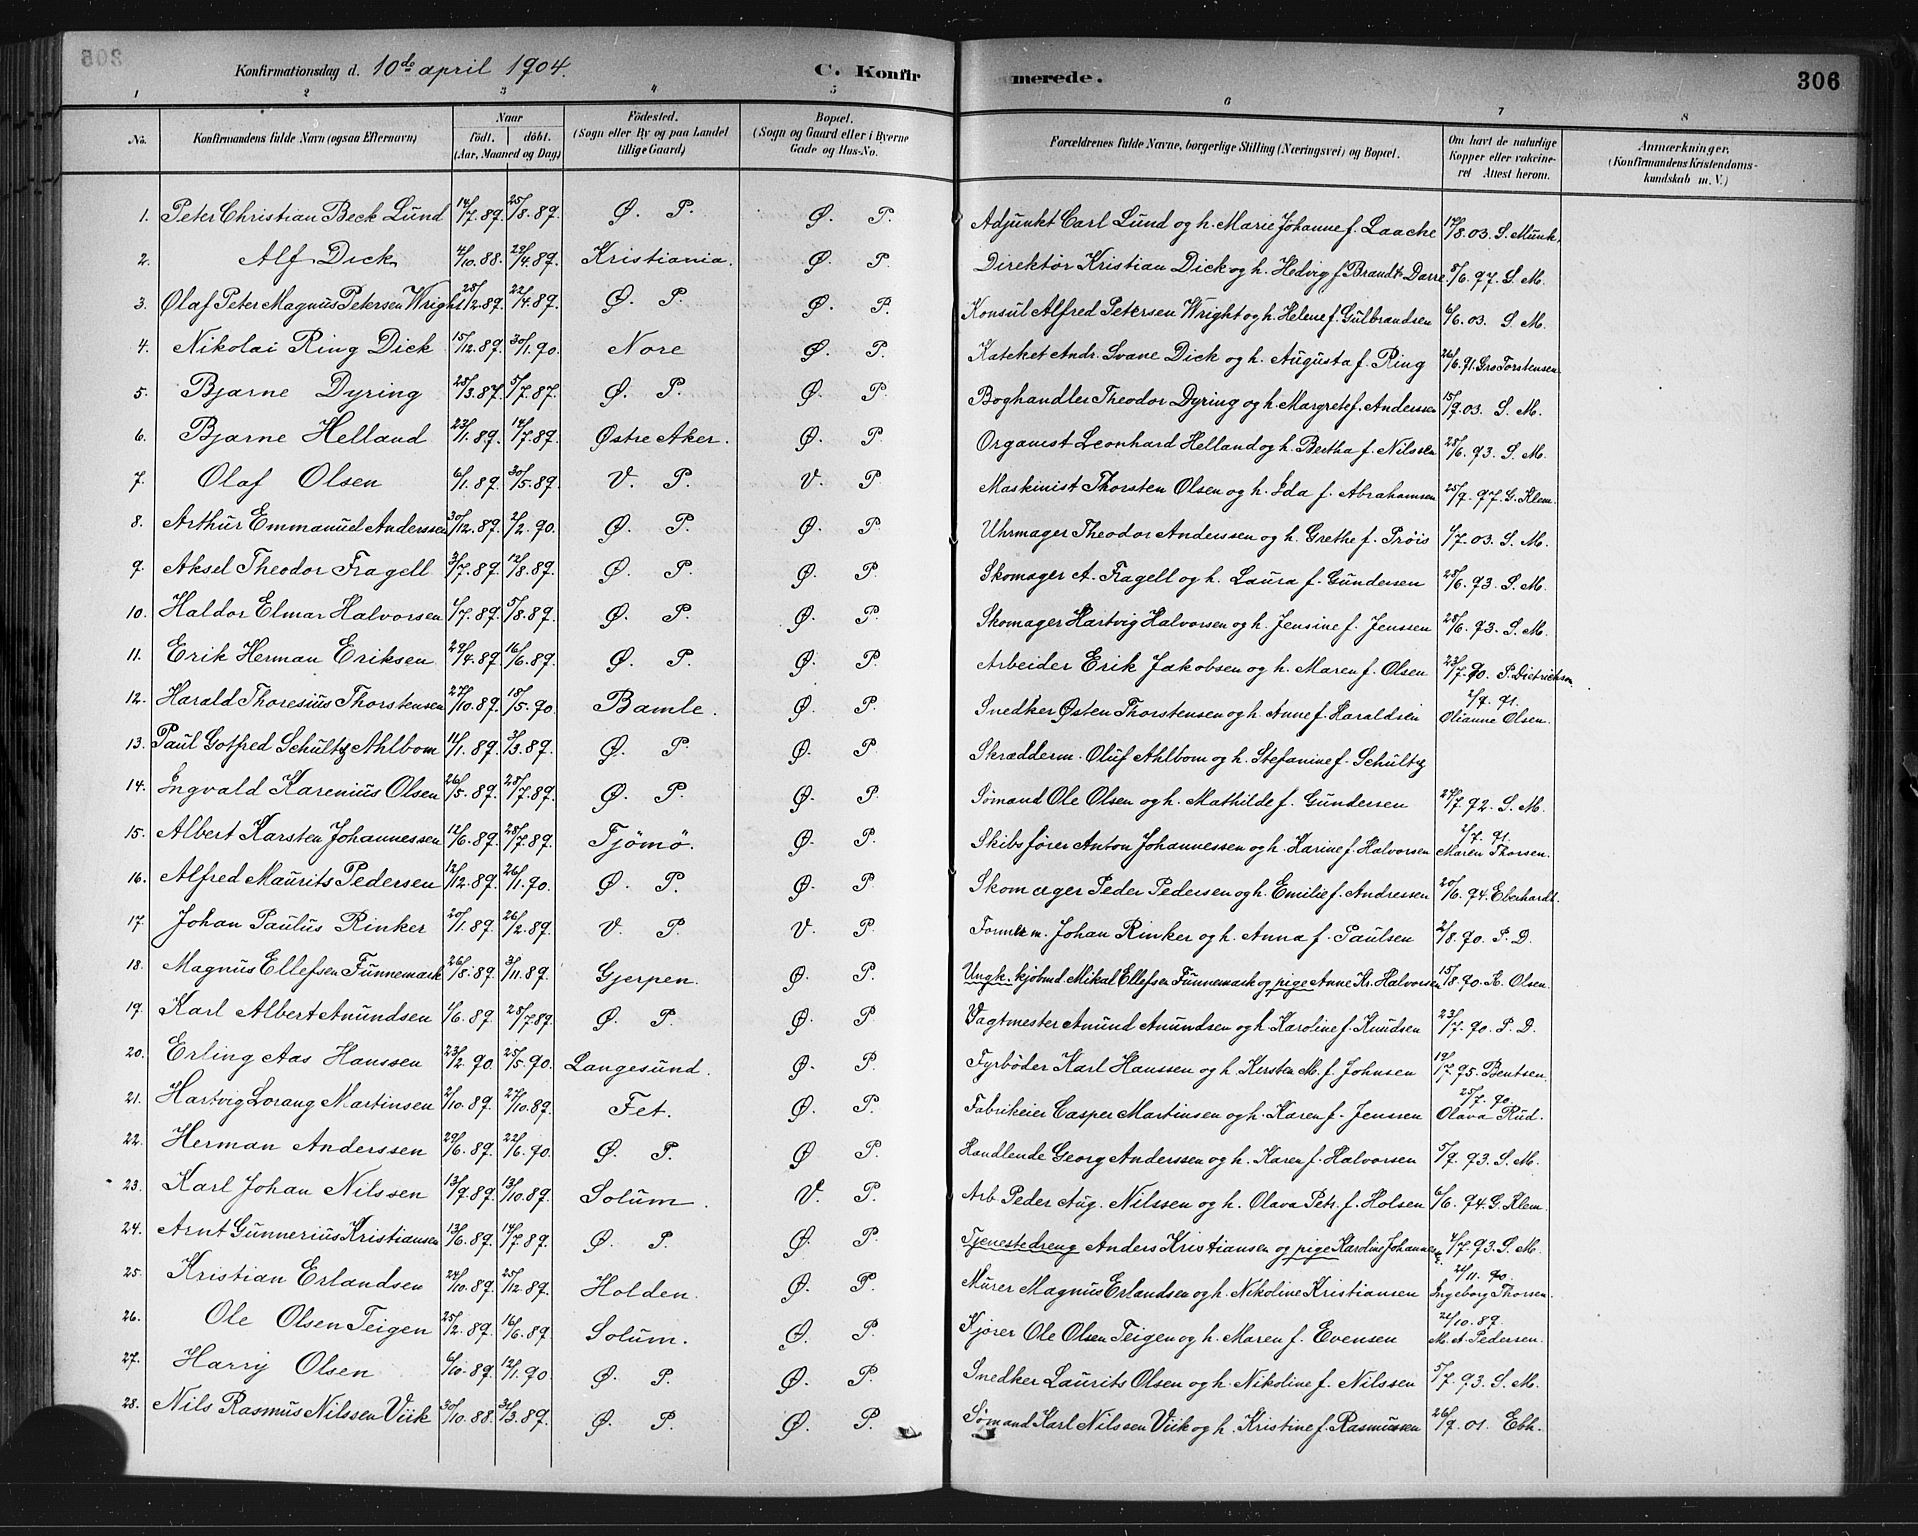 305
Konfirmationsdag d. 10de april 1904.
C. Konfirmerede.
306
1 2 3 4 5 6 7 8
No. Konfirmandens fulde Navn (ogsaa Efternavn) Naar født. døbt. (Aar, Maaned og Dag) Fødested. (Sogn eller By og paa Landet tillige Gaard) Bopæl. (Sogn og Gaard eller i Byerne Gade og Hus-No. Forældrenes fulde Navne, borgerlige Stilling (Næringsvei) og Bopæl. Om havt de naturlige Kopper eller vakcineret Attest herom. Anmærkninger, (Konfirmandens Kristendomskundskab m. V.)
1. Peter Christian Beck Lund 14/7.89. 25/8.89. Ø. P. Ø. P. Adjunkt Carl Lund og h. Marie Johanne f. Laache 17/8.03. S. Munk.
2. Alf Dick 4/10.88. 23/4.89. Kristiania. Ø. P. Direktør Kristian Dick og h. Hedvig f. Brandt Darre 5/6.97. S. M.
3. Olaf Peter Magnus Petersen Wright 28/2.89. 22/4.89. Ø. P. Ø. P. Konsul Alfred Petersen Wright og h. Helene f. Gulbrandsen 6/6.03. S. M.
4. Nikolai Ring Dick 15/12.89. 30/1.90. Nore Ø. P. Kateket Andr. Svane Dick og h. Augusta f. Ring 26/6.91. Gro Torstensen
5. Bjarne Dyring 28/3.87. 5/7.87. Ø. P. Ø. P. Boghandler Theodor Dyring og h. Margrete f. Anderssen 15/9.03. S. M.
6. Bjarne Helland 23/1.89. 14/7.89. Østre Aker. Ø. P. Organist Leonhard Helland og h. Bertha f. Nilssen 28/6.93. S. M.
7. Olaf Olsen 6/1.89. 30/5.89. V. P. V. P. Maskinist Thorsten Olsen og h. Ida f. Abrahamsen 25/9.97. G. Klem.
8. Arthur Emmanuel Anderssen 30/12.89. 2/2.90. Ø. P. Ø. P. Uhrmager Theodor Anderssen og h. Grethe f. Prøis 1/7.03. S. M.
9. Aksel Theodor Fragell 3/7.89. 12/8.89. Ø. P. Ø. P. Skomager A. Fragell og h. Laura f. Gundersen 28/6.93. S. M.
10. Haldor Elmar Halvorsen 1/7.89. 5/8.89. Ø. P. Ø. P. Skomager Hartvig Halvorsen og h. Jensine f. Jenssen 28/6.93. S. M.
11. Erik Herman Eriksen 29/4.89. 16/6.89. Ø. P. Ø. P. Arbeider Erik Jakobsen og h. Maren f. Olsen 23/7.90. P. Dietrichson
12. Harald Thoresius Thorstensen 27/10.89. 18/5.90. Bamle. Ø. P. Snedker Østen Thorstensen og h. Anne f. Haraldsen 2/9.91. Olianne Olsen.
13. Paul Gotfred Schultz Ahlbom 11/1.89. 3/3.89. Ø. P. Ø. P. Skrædderm. Oluf Ahlbom og h. Stefanine f. Schultz
14. Ingvald Karenius Olsen 26/5.89. 28/7.89. Ø. P. Ø. P. Sømand Ole Olsen og h. Mathilde f. Gundersen 27/7.92. S. M.
15. Albert Karsten Johannessen 12/6.89. 28/7.89. Tjømø. Ø. P. Skibsfører Anton Johannessen og h. Karine f. Halvorsen 2/7.91. Maren Thorsen.
16. Alfred Maurits Pedersen 12/12.89. 26/1.90. Ø. P. Ø. P. Skomager Peder Pedersen og h. Emilie f. Andressen 20/6.94. Eberhardt.
17. Johan Paulus Rinker 20/1.89. 26/2.89. V. P. V. P. Former m. Johan Rinker og h. Anna f. Paulsen 2/8.90. P. D.
18. Magnus Ellefsen Funnemark 26/8.89. 3/11.89. Gjerpen. Ø. P. Ungk. kjøbmd. Mikal Ellefsen Funnemark og pige Anne Kr. Halvorsen 15/8.90. K. Olsen
19. Karl Albert Anundsen 1/6.89. 28/7.89. Ø. P. Ø. P. Vagtmester Anund Anundsen og h. Karoline f. Knudsen 23/7.90. P. D.
20. Erling Aas Hanssen 23/2.90. 25/5.90. Langesund. Ø. P. Fyrbøder Karl Hanssen og h. Kersten M. f. Johnsen 19/7.95. Bentsen.
21. Hartvig Lorang Martinsen 2/10.89. 27/10.89. Fet. Ø. P. Fabrikeier Casper Martinsen og h. Karen f. Jenssen 25/7.90. Olava Rud.
22. Herman Anderssen 29/6.89. 22/6.90. Ø. P. Ø P. Handlende Georg Anderssen og h. Karen f. Halvorsen 5/9.93. S. M.
23. Karl Johan Nilssen 13/9.89. 13/10.89. Solum. V. P. Arb. Peder Aug. Nilssen og h. Olava Petr. f. Holsen 6/6.94. G. Klem.
24. Arnt Gunnerius Kristiansen 13/6.89. 14/7.89. Ø. P. Ø. P. Tjenestedreng Anders Kristiansen og pige Karoline Johannesen 4/7.93. S. M.
25. Kristian Erlandsen 24/10.89. 25/12.89. Holden. Ø. P. Murer Magnus Erlandsen og h. Nikoline Kristiansen 21/11.90. Ingeborg Thorsen.
26. Ole Olsen Teigen 25/2.89. 16/6.89. Solum. Ø. P. Kjører Ole Olsen Teigen og h. Maren f. Evensen 21/10.89. M. A. Pedersen.
27. Harry Olsen 6/10.89. 12/1.90 Ø. P. Ø. P. Snedker Laurits Olsen og h. Nikoline f. Nilssen 5/7.93. S. M.
28. Nils Rasmus Nilssen Viik 30/10.88. 31/3.89. Ø. P. Ø. P. Sømand Karl Nilssen Viik og h. Kristine f. Rasmussen 26/9.01. Ebh.